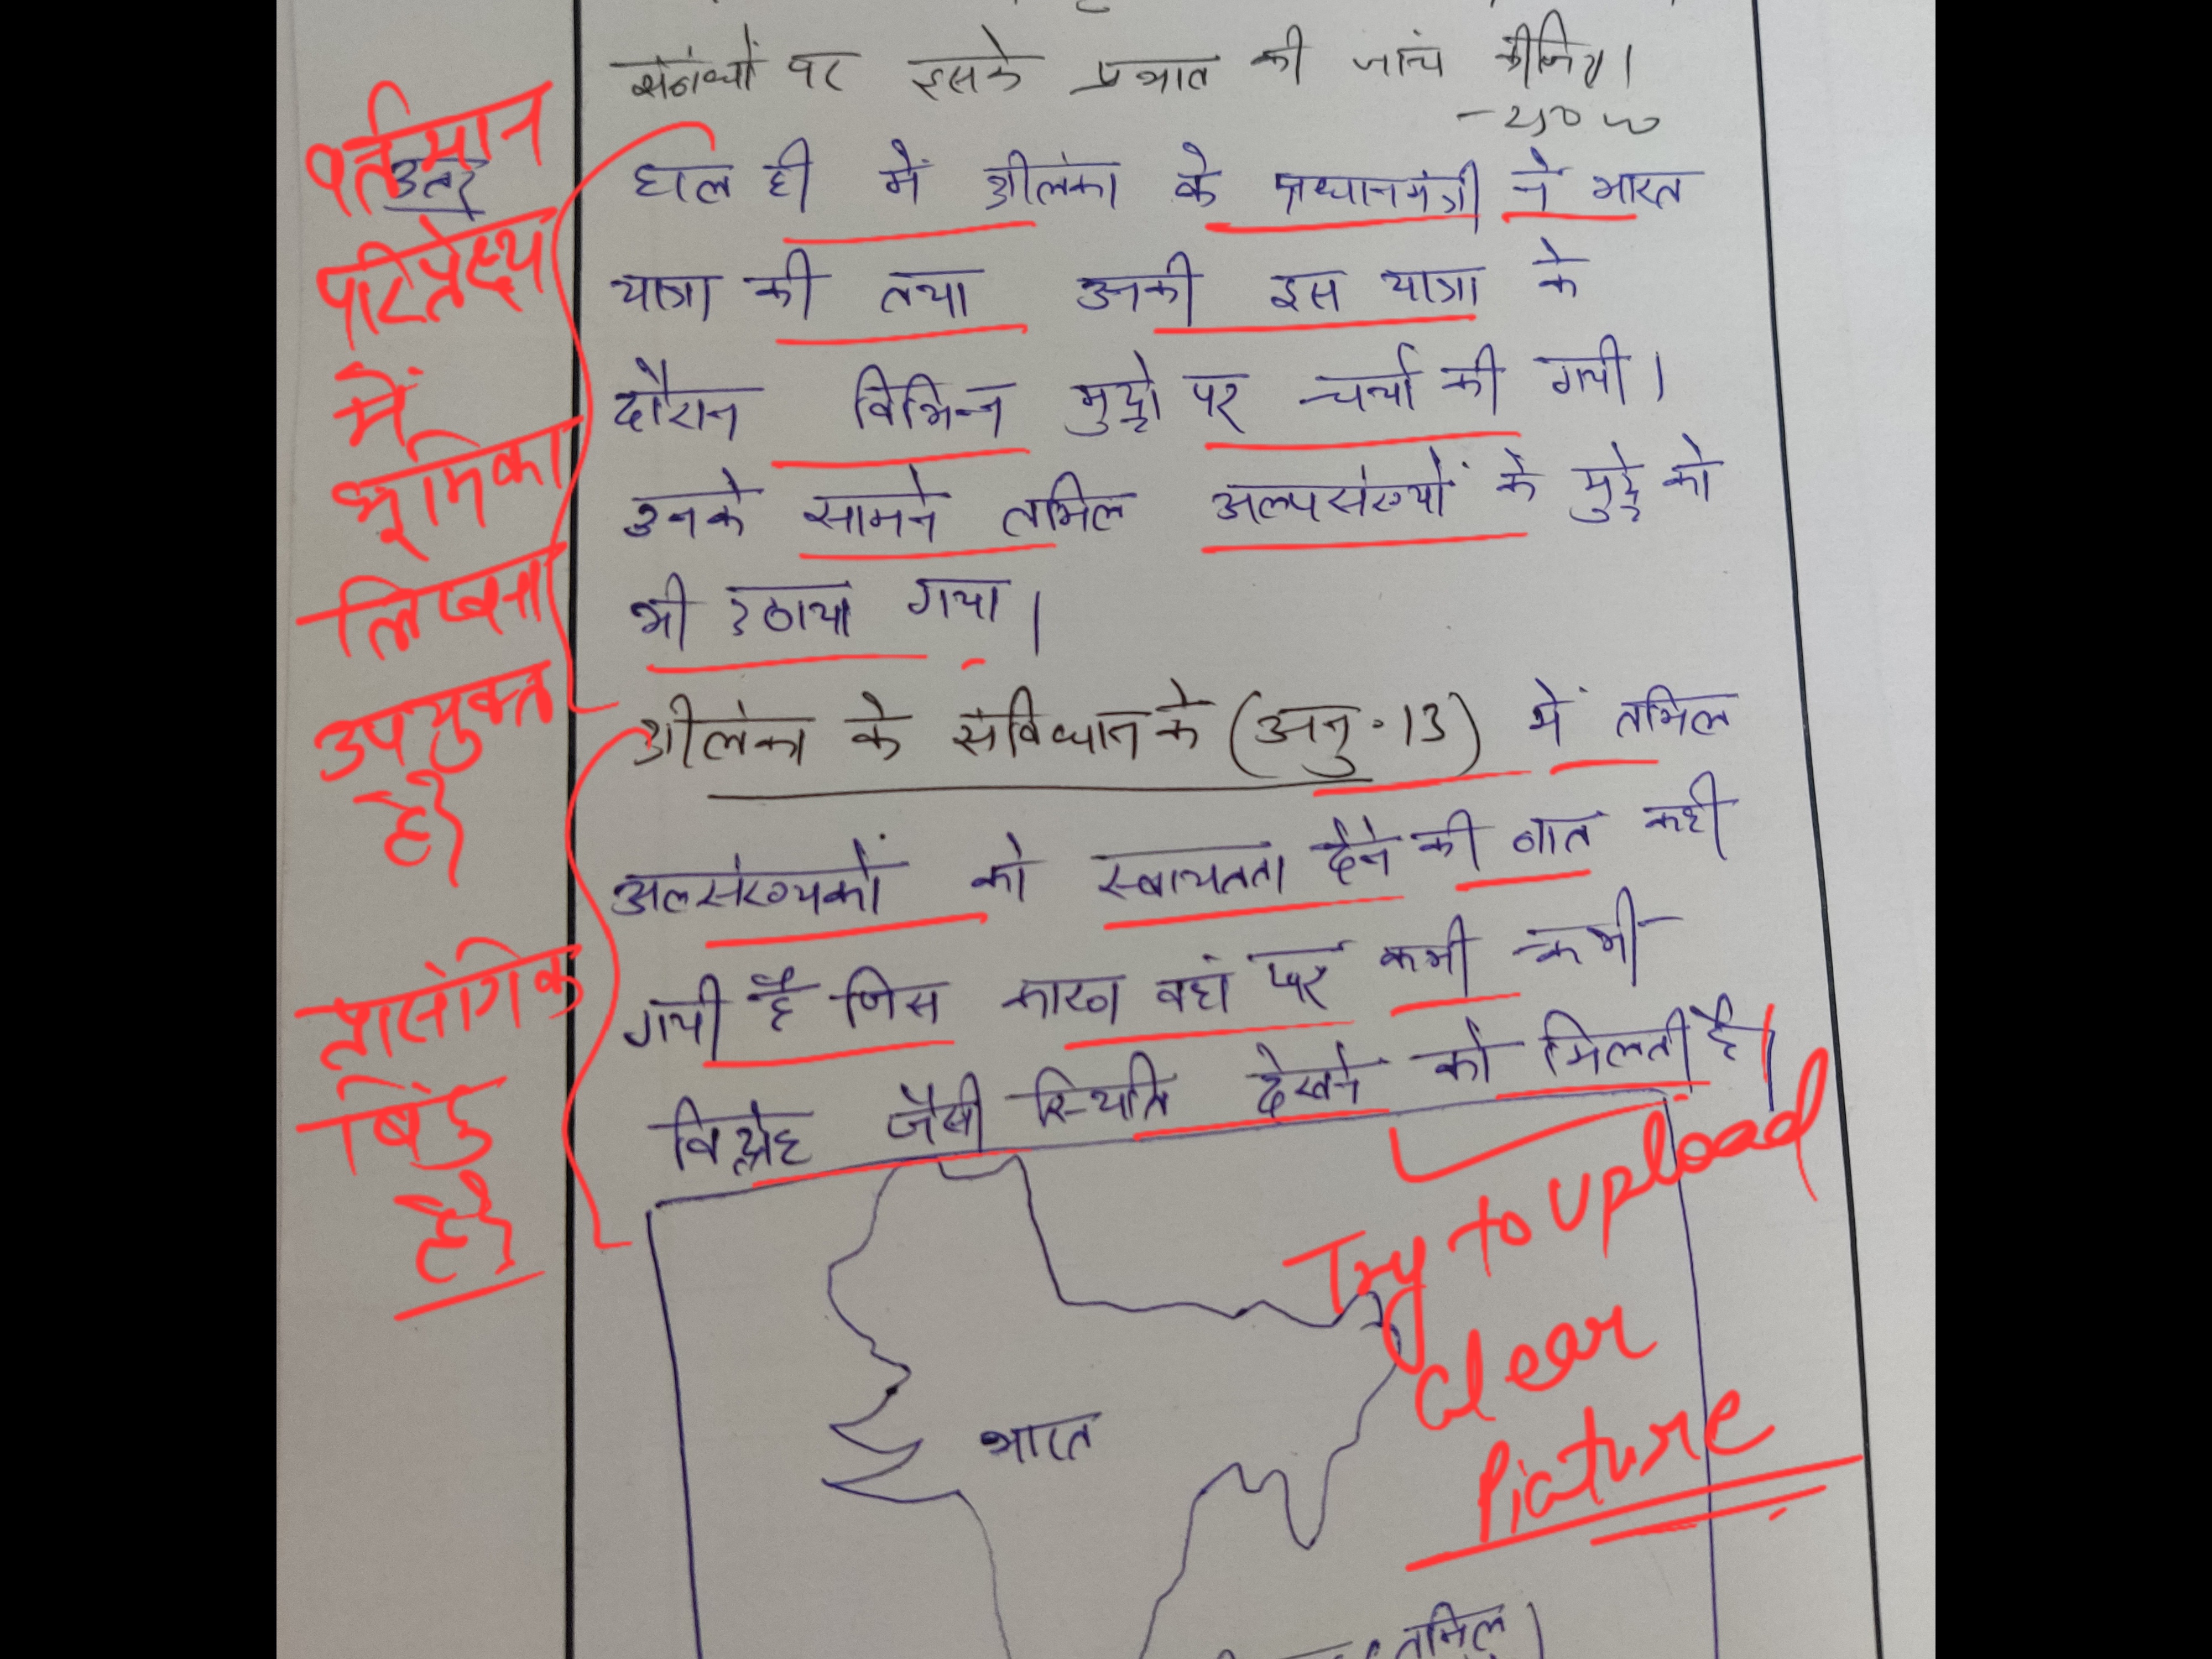 संबंधों पर इसके प्रभाव की जांच कीजिए।
- 250 w
उत्तर
हाल ही में श्रीलंका के प्रधानमंत्री ने भारत
यात्रा की तथा उनकी इस यात्रा के
दौरान विभिन्न मुद्दो पर चर्चा की गयी।
उनके सामने तमिल अल्पसंख्यों के मुद्दे को
भी उठाया गया।
श्रीलंका के संविधान के (अनु॰13) में तमिल
अल्संख्यकों को स्वायतता देने की बात कही
गयी है जिस कारण वहां पर कभी कभी
विद्रोह जैसी स्थिति देखने को मिलती है।
भारत
तमिल
वर्तमान
परिप्रेक्ष्य
में
भूमिका
लिखना
उपयुक्त
है।
प्रासंगिक
बिंदु
है।
Try to upload
clear
Picture